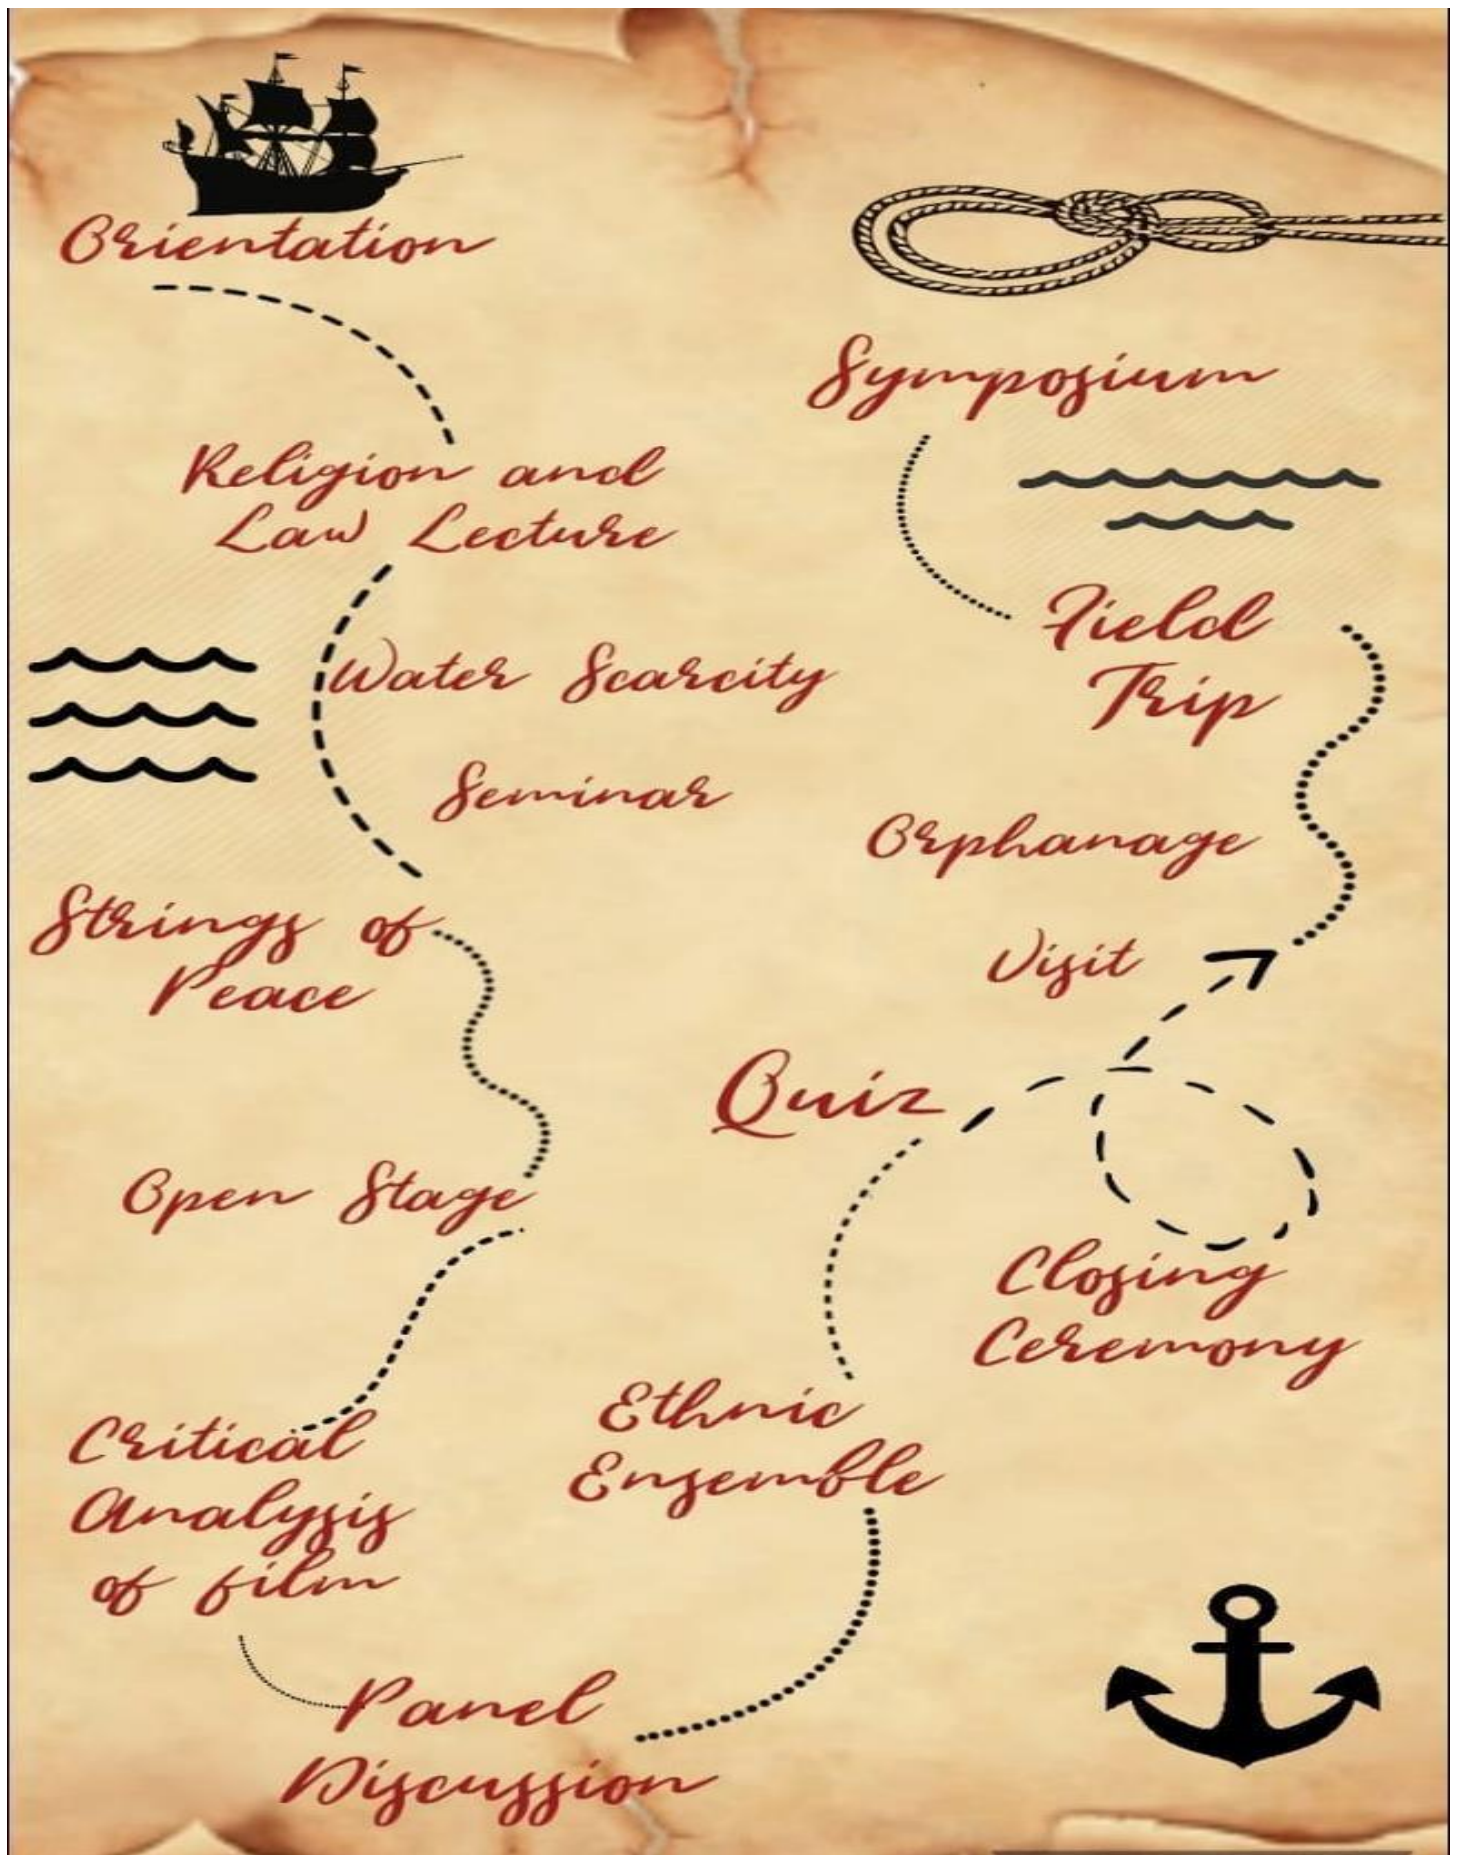 Orientation
Religion and
Law Lecture
Water Scarcity
Seminar
Strings of
Peace
Open Stage
Critical
Analysis
of film
Panel
Discussion
Ethnic
Ensemble
Quiz
Closing
Ceremony
Orphanage
Visit
Field
Trip
Symposium